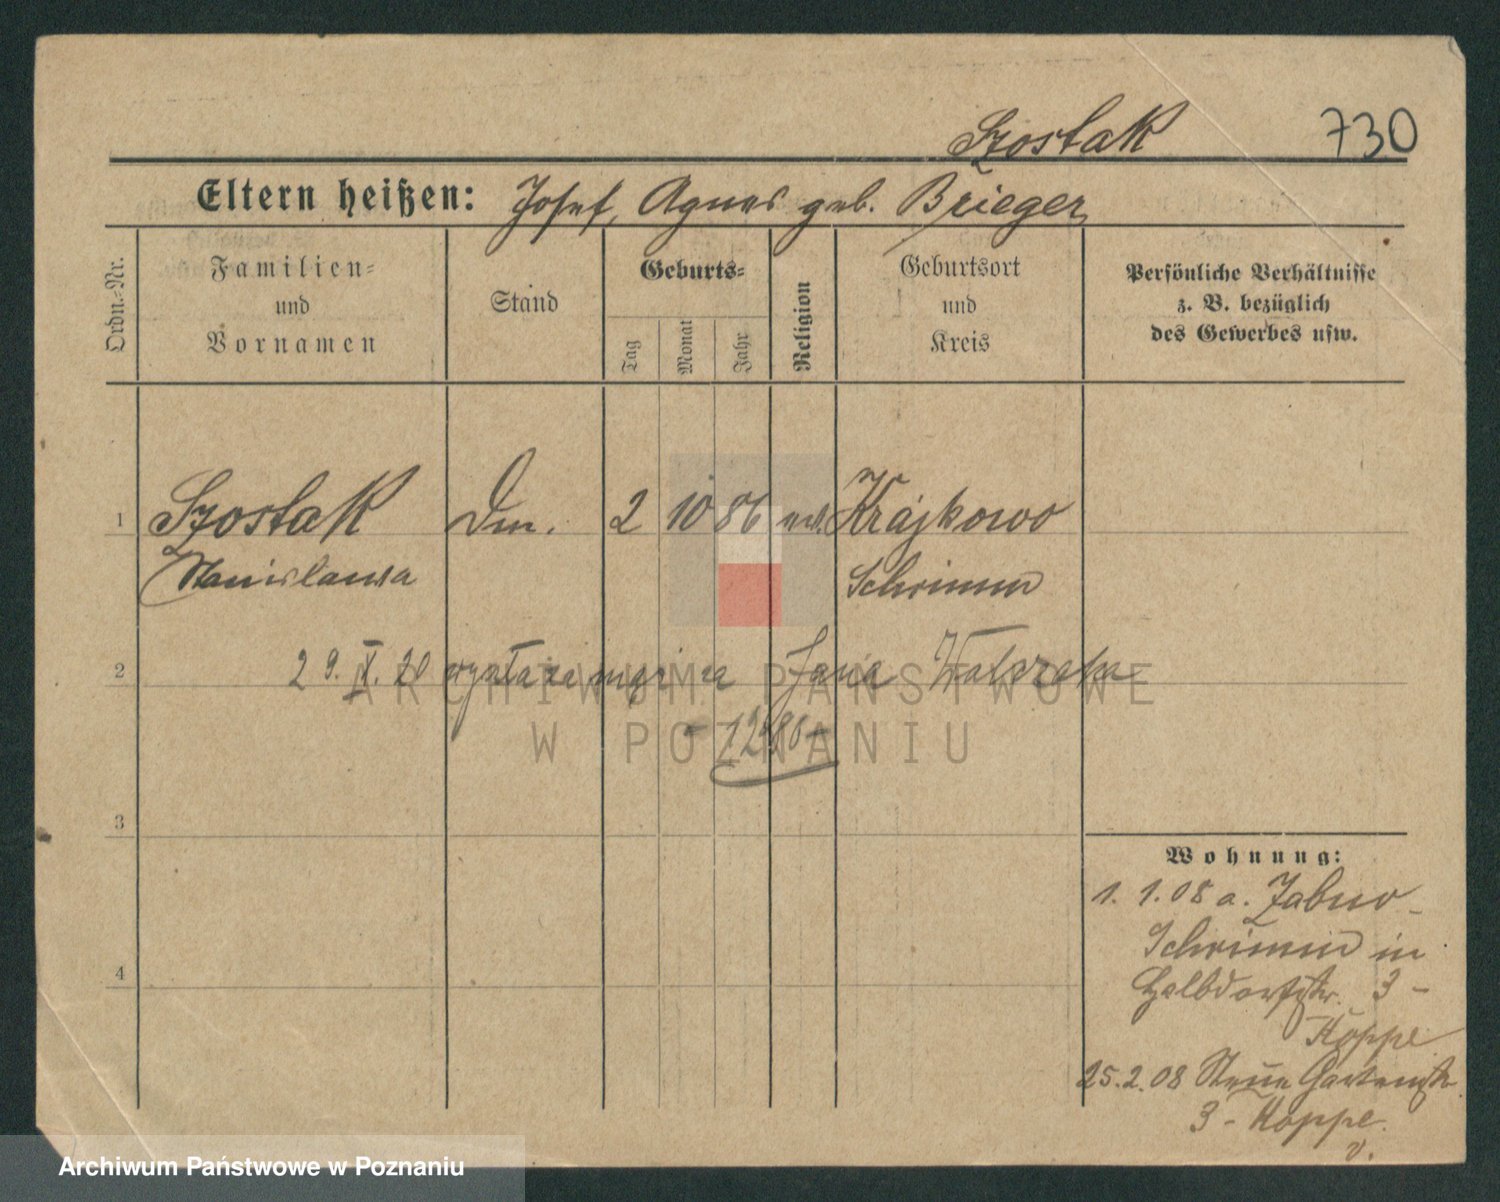 Szostak 730
Eltern heißen: Josef, Agnes geb. Brieger
Ordn.-Nr.
Familien-
und
Vornamen
Stand
Geburts-
Tag
Monat
Jahr
Religion
Geburtsort
und
Kreis
Persönliche Verhältnisse
z. B. bezüglich
des Gewerbes usw.
1 Szostak 2 10 86 Krajkowo
Stanislawa Schrimm
2 29. X. 20 Jana
-1280-
3
4
Wohnung:
1. 1. 08 a. Zabno-
Schrimm in
Halbdorfstr. 3 -
Hoppe
25.2.08 Neue Gartenstr
3 - Hoppe.
v.
ARCHIWUM PAŃSTWOWE
W POZNANIU
Archiwum Państwowe w Poznaniu